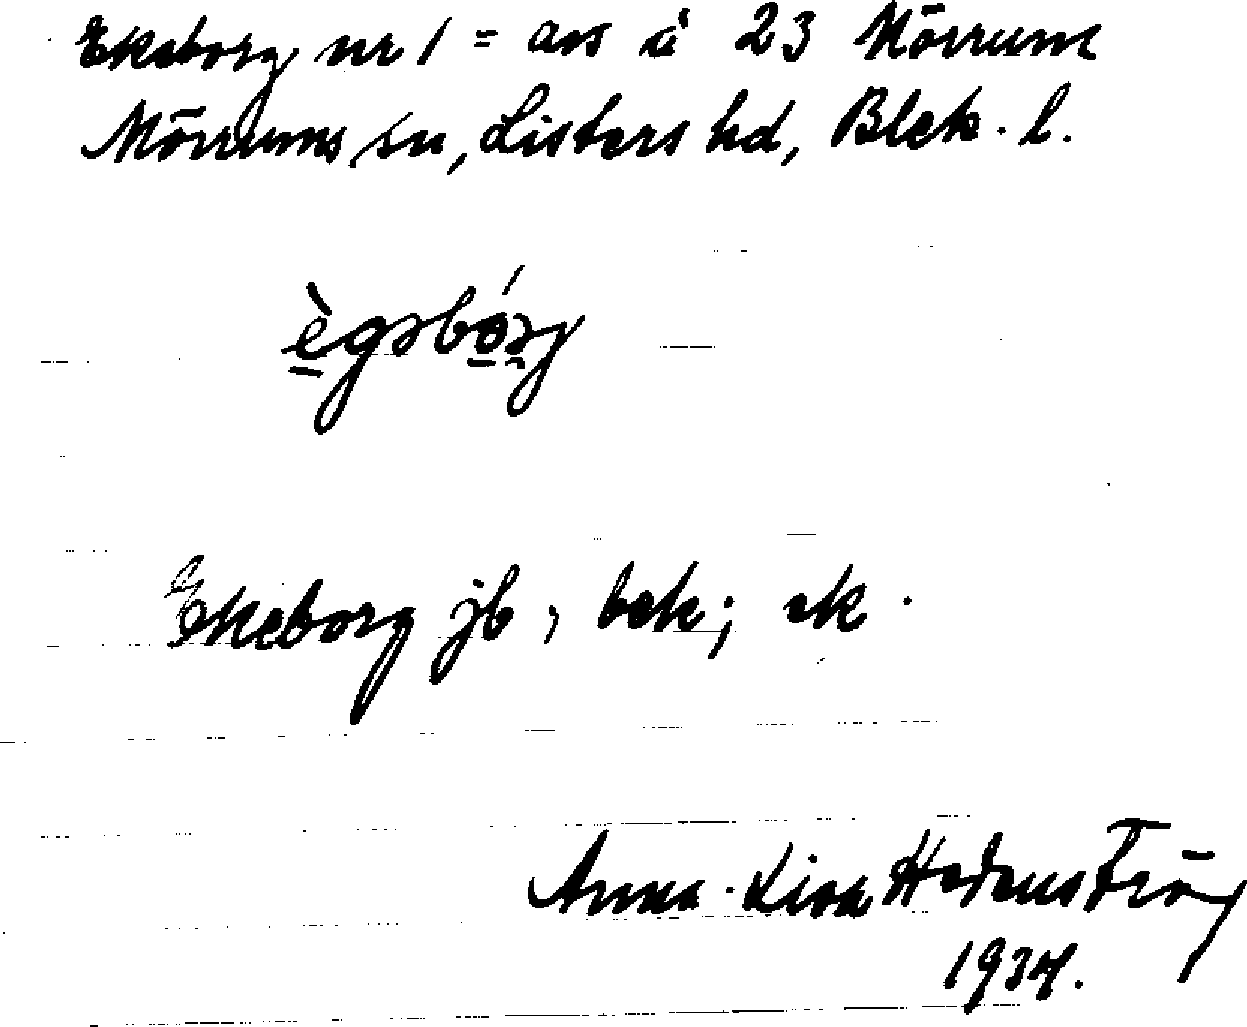 Ekeborg nr 1 = avs å 23 Mörrum
Mörrums sn, Listers hd, Blek. l.
ègəbórg
Ekeborg jb, bek; ek.
Anna-Lisa Hedenström
1934.